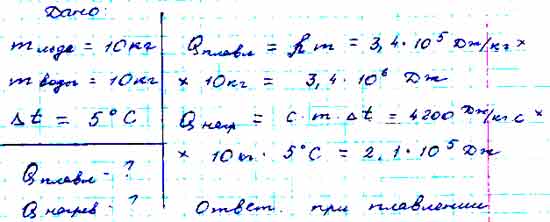 Дано:
m льда = 10 кг
m воды = 10 кг
Δt = 5°C
Qплавл - ?
Qнагрев - ?
Qплавл = λm = 3,4·10⁵ Дж/кг ×
× 10кг = 3,4·10⁶ Дж
Qнагр = c·m·Δt = 4200 Дж/кг·с ×
× 10 кг·5°C = 2,1·10⁵ Дж
Ответ: при плавлении